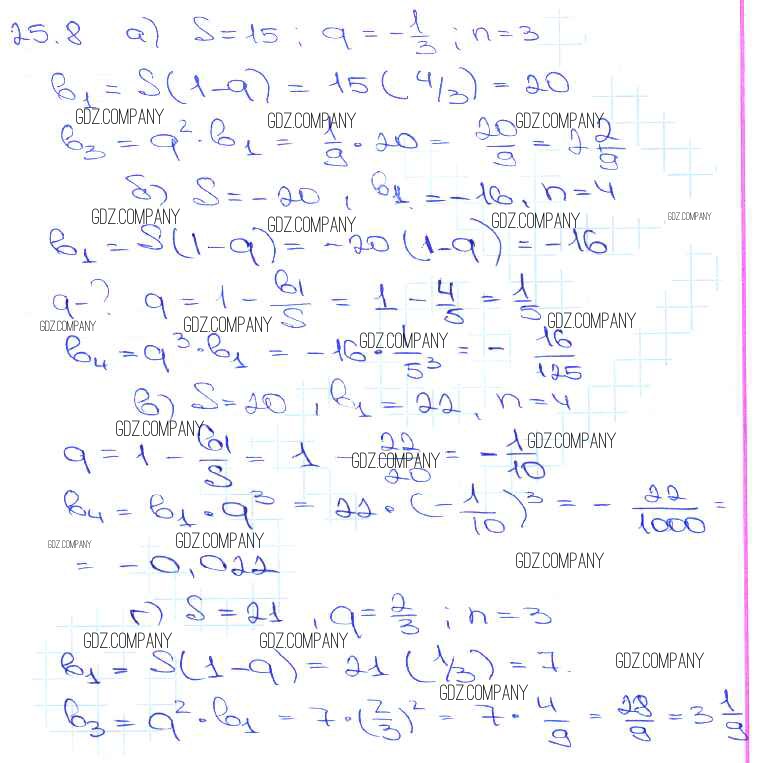 25.8 а) S=15; q=-1/3; n=3
b₁ = S(1-q) = 15(4/3) = 20
GDZ.COMPANY GDZ.COMPANY GDZ.COMPANY
b₃ = q²·b₁ = 1/9·20 = 20/9 = 2 2/9
б) S=-20, b₁=-16, n=4
GDZ.COMPANY GDZ.COMPANY GDZ.COMPANY GDZ.COMPANY
b₁ = S(1-q) = -20(1-q) = -16
q-? q = 1 - b₁/S = 1 - 4/5 = 1/5
GDZ.COMPANY GDZ.COMPANY GDZ.COMPANY GDZ.COMPANY
b₄ = q³·b₁ = -16·1/5³ = - 16/125
в) S=20, b₁=22, n=4
GDZ.COMPANY GDZ.COMPANY GDZ.COMPANY
q = 1 - b₁/S = 1 - 22/20 = - 1/10
b₄ = b₁·q³ = 22·(-1/10)³ = - 22/1000 =
GDZ.COMPANY GDZ.COMPANY GDZ.COMPANY
= -0,022
г) S=21, q=2/3; n=3
GDZ.COMPANY GDZ.COMPANY GDZ.COMPANY
b₁ = S(1-q) = 21(1/3) = 7.
GDZ.COMPANY
b₃ = q²·b₁ = 7·(2/3)² = 7·4/9 = 28/9 = 3 1/9